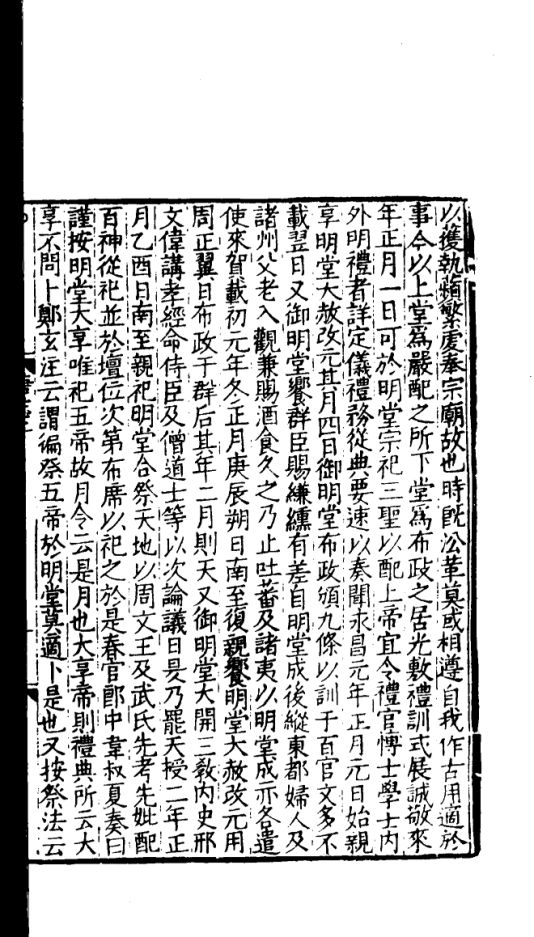 以獲執蘋蘩虔奉宗廟故也時旣㳂革莫或相遵自我作古用適於
事今以上堂爲嚴配之所下堂爲布政之居光敷禮訓式展誠敬來
年正月一日可於明堂宗祀三聖以配上帝宜令禮官愽士學士內
外明禮者詳定儀禮務從典要速以奏聞永昌元年正月元日始親
享明堂大赦改元其月四日御明堂布政頒九條以訓于百官文多不
載翌日又御明堂饗群臣賜縑纁有差自明堂成後縱東都婦人及
諸州父老入觀兼賜酒食久之乃止吐蕃及諸夷以明堂成亦各遣
使來賀載初元年冬正月庚辰朔日南至復親饗明堂大赦改元用
周正翼日布政于群后其年二月則天又御明堂大開三敎內史邢
文偉講孝經命侍臣及僧道士等以次論議日昃乃罷天授二年正
月乙酉日南至親祀明堂合祭天地以周文王及武氏先考先妣配
百神從祀並於壇位次第布席以祀之於是春官郎中韋叔夏奏曰
謹按明堂大享唯祀五帝故月令云是月也大享帝則禮典所云大
享不問卜鄭玄注云謂徧祭五帝於明堂莫適卜是也又按祭法云